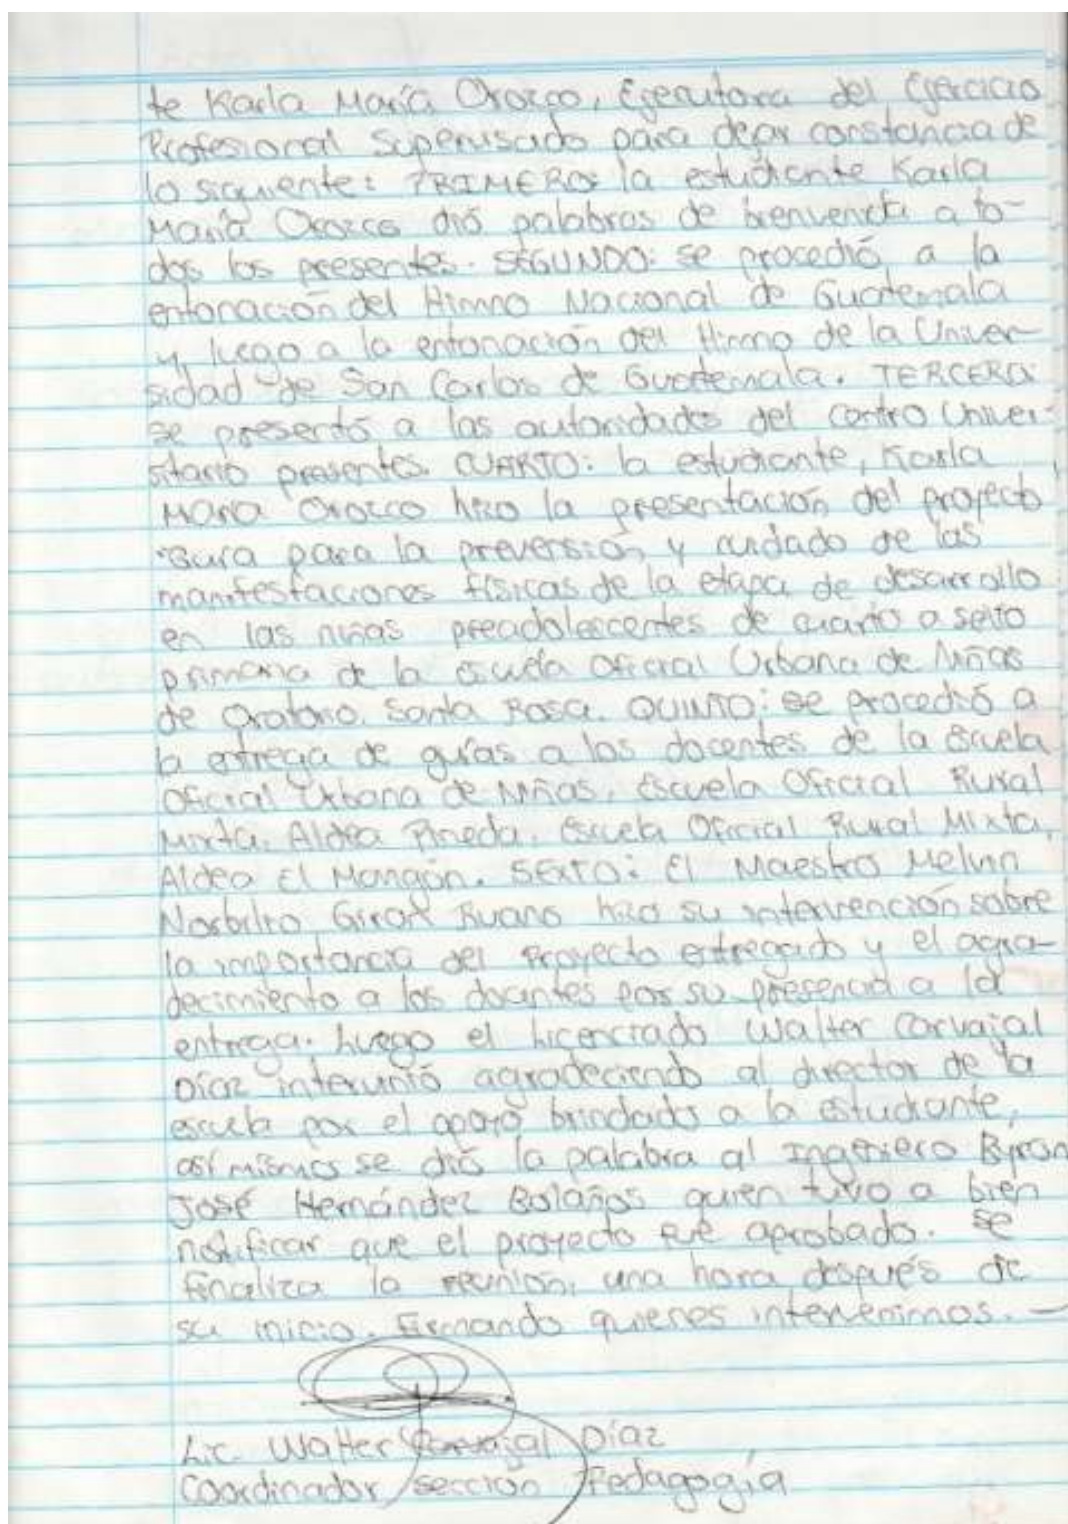 te Karla María Orozco, Ejecutora del Ejercicio
Profesional Supervisado para dejar constancia de
lo siguiente: PRIMERO: la estudiante Karla
María Orozco dió palabras de bienvenida a to-
dos los presentes. SEGUNDO: se procedió a la
entonación del Himno Nacional de Guatemala
y luego a la entonación del Himno de la Univer-
sidad de San Carlos de Guatemala. TERCERO:
se presentó a las autoridades del Centro Univer-
sitario presentes. CUARTO: la estudiante, Karla
María Orozco hizo la presentación del proyecto
"Guía para la prevensión y cuidado de las
manifestaciones físicas de la etapa de desarrollo
en las niñas preadolescentes de cuarto a sexto
primaria de la escuela Oficial Urbana de Niñas
de Oratorio, Santa Rosa. QUINTO: se procedió a
la entrega de guías a los docentes de la Escuela
Oficial Urbana de Niñas, Escuela Oficial Rural
Mixta, Aldea Pineda, Escuela Oficial Rural Mixta,
Aldea El Mangón. SEXTO: El Maestro Melvin
Norbilto Girón Ruano hizo su intervención sobre
la importancia del Proyecto entregado y el agra-
decimiento a los docentes por su presencia a la
entrega. Luego el Licenciado Walter Carvajal
Díaz intervinió agradeciendo al director de la
escuela por el apoyo brindado a la estudiante,
así mismos se dió la palabra al Ingeniero Byron
José Hernández Bolaños quien tuvo a bien
notificar que el proyecto fue aprobado. Se
finaliza la reunión, una hora después de
su inicio. Firmando quienes intervenimos.
Lic. Walter Carvajal Díaz
Coordinador Sección Pedagogía